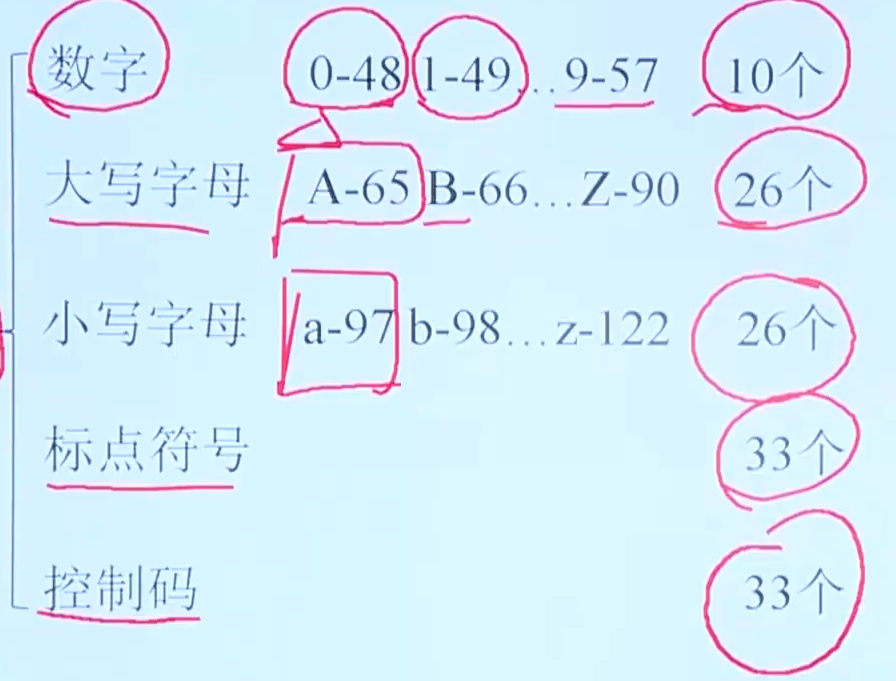 数字 0-48 1-49...9-57 10个
大写字母 A-65 B-66...Z-90 26个
小写字母 a-97 b-98...z-122 26个
标点符号 33个
控制码 33个